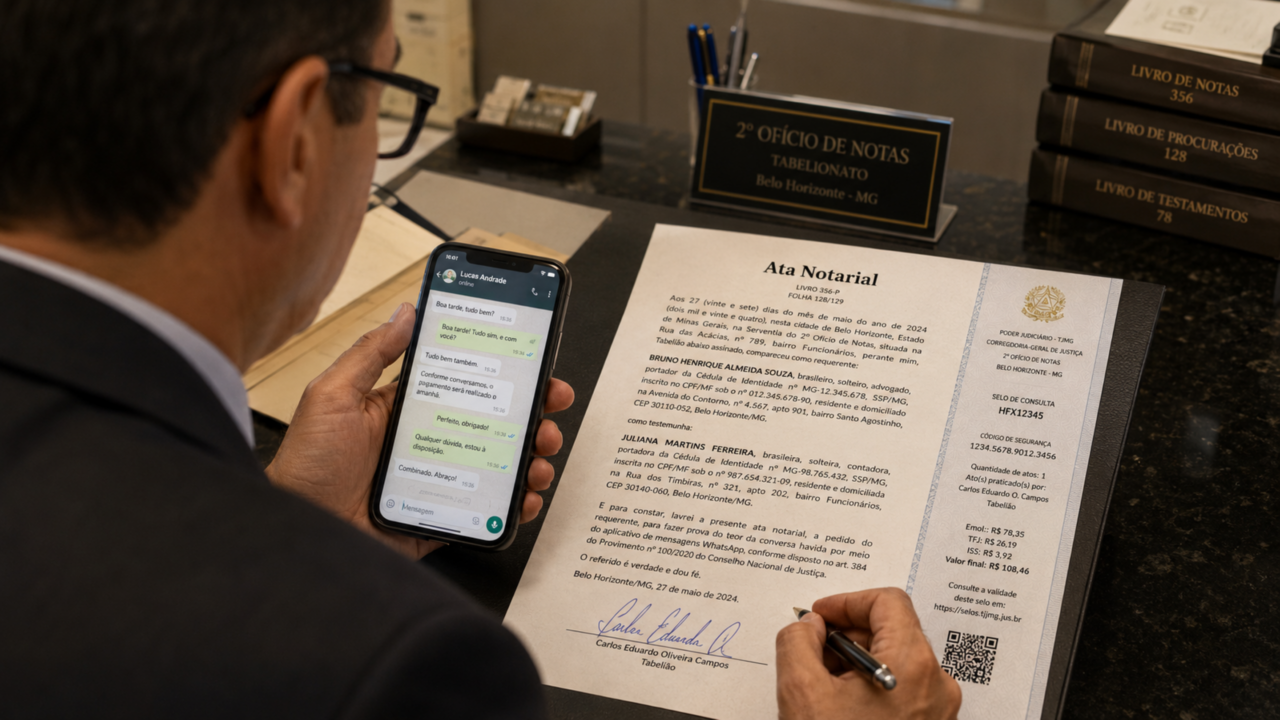 16:01
Lucas Andrade
online
Boa tarde, tudo bem?
15:35
Boa tarde! Tudo sim, e com
você?
15:36
Tudo bem também.
15:36
Conforme conversamos, o
pagamento será realizado o
amanhã.
15:36
Perfeito, obrigado!
15:36
Qualquer dúvida, estou à
disposição.
15:36
Combinado. Abraço!
15:36
Mensagem
2º OFÍCIO DE NOTAS
TABELIONATO
Belo Horizonte - MG
LIVRO DE NOTAS
356
LIVRO DE PROCURAÇÕES
128
LIVRO DE TESTAMENTOS
78
Ata Notarial
LIVRO 356-P
FOLHA 128/129
Aos 27 (vinte e sete) dias do mês de maio do ano de 2024
(dois mil e vinte e quatro), nesta cidade de Belo Horizonte, Estado
de Minas Gerais, na Serventia do 2º Ofício de Notas, situada na
Rua das Acácias, nº 789, bairro Funcionários, perante mim,
Tabelião abaixo assinado, compareceu como requerente:
BRUNO HENRIQUE ALMEIDA SOUZA, brasileiro, solteiro, advogado,
portador da Cédula de Identidade nº MG-12.345.678, SSP/MG,
inscrito no CPF/MF sob o nº 012.345.678-90, residente e domiciliado
na Avenida do Contorno, nº 4.567, apto 901, bairro Santo Agostinho,
CEP 30110-052, Belo Horizonte/MG.
como testemunha:
JULIANA MARTINS FERREIRA, brasileira, solteira, contadora,
portadora da Cédula de Identidade nº MG-98.765.432, SSP/MG,
inscrita no CPF/MF sob o nº 987.654.321-09, residente e domiciliada
na Rua dos Timbiras, nº 321, apto 202, bairro Funcionários,
CEP 30140-060, Belo Horizonte/MG.
E para constar, lavrei a presente ata notarial, a pedido do
requerente, para fazer prova do teor da conversa havida por meio
do aplicativo de mensagens WhatsApp, conforme disposto no art. 384
do Provimento nº 100/2020 do Conselho Nacional de Justiça.
O referido é verdade e dou fé.
Belo Horizonte/MG, 27 de maio de 2024.
Carlos Eduardo Oliveira Campos
Tabelião
PODER JUDICIÁRIO - TJMG
CORREGEDORIA-GERAL DE JUSTIÇA
2º OFÍCIO DE NOTAS
BELO HORIZONTE - MG
SELO DE CONSULTA
HFX12345
CÓDIGO DE SEGURANÇA
1234.5678.9012.3456
Quantidade de atos: 1
Ato(s) praticado(s) por:
Carlos Eduardo O. Campos
Tabelião
Emol.: R$ 78,35
TFJ: R$ 26,19
ISS: R$ 3,92
Valor final: R$ 108,46
Consulte a validade
deste selo em:
https://selos.tjmg.jus.br